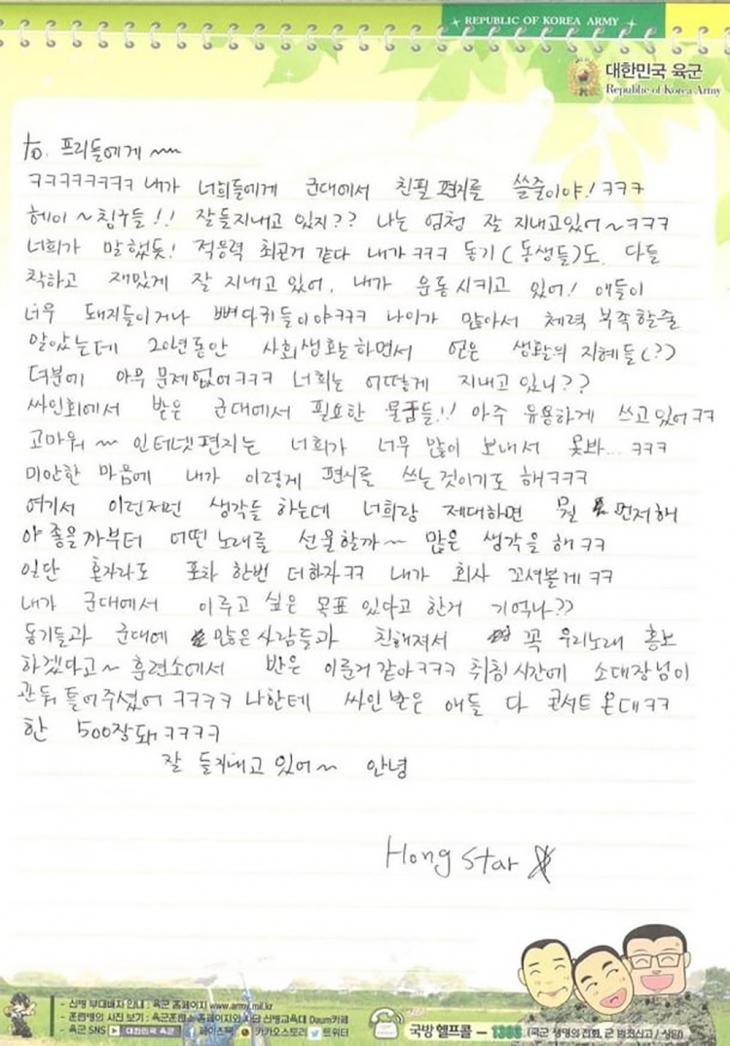 REPUBLIC OF KOREA ARMY
대한민국 육군
Republic of Korea Army
to. 프리들에게 ~~
ㅋㅋㅋㅋㅋㅋㅋㅋ 내가 너희들에게 군대에서 친필 편지를 쓸줄이야! ㅋㅋㅋ
헤이~ 칭구들!! 잘들지내고 있지?? 나는 엄청 잘 지내고있어~ㅋㅋㅋ
너희가 말했듯! 적응력 최곤거 같다 내가 ㅋㅋㅋ 동기(동생들)도 다들
착하고 재밌게 잘 지내고 있어. 내가 운동시키고 있어! 애들이
너무 돼지들이거나 뼈다귀들이야ㅋㅋㅋ 나이가 많아서 체력 부족할줄
알았는데 20년동안 사회생활하면서 얻은 생활의 지혜들(?)
덕분에 아무 문제없어ㅋㅋㅋ 너희는 어떻게 지내고 있니??
싸인회에서 받은 군대에서 필요한 물품들!! 아주 유용하게 쓰고있어ㅋㅋ
고마워~ 인터넷편지는 너희가 너무 많이 보내서 못봐... ㅋㅋㅋ
미안한 마음에 내가 이렇게 편지를 쓰는것이기도 해ㅋㅋㅋ
여기서 이런저런 생각들 하는데 너희랑 제대하면 뭘 먼저해
야 좋을까부터 어떤노래를 선물할까~ 많은 생각을 해 ㅋㅋ
일단 혼자라도 포차 한번 더하자ㅋㅋ 내가 회사 꼬셔볼게 ㅋㅋ
내가 군대에서 이루고 싶은 목표 있다고 한거 기억나??
동기들과 군대에 많은사람들과 친해져서 꼭 우리노래 홍보
하겠다고~ 훈련소에서 반은 이룬거 같아ㅋㅋㅋ 취침시간에 소대장님이
관둬 틀어주셨어 ㅋㅋㅋㅋ 나한테 싸인받은 애들 다 콘서트 온대ㅋㅋ
한 500장돼ㅋㅋㅋㅋ
잘 들지내고 있어~ 안녕
Hong Star
- 신병 부대배치 안내 : 육군 홈페이지 www.army.mil.kr
- 훈련병의 사진 보기 : 육군훈련소 홈페이지와 사단 신병교육대 Daum카페
- 육군 SNS 대한민국 육군 페이스북 카카오스토리 트위터
국방헬프콜 - 1303 (국군 생명의 전화, 군 범죄신고 / 상담)